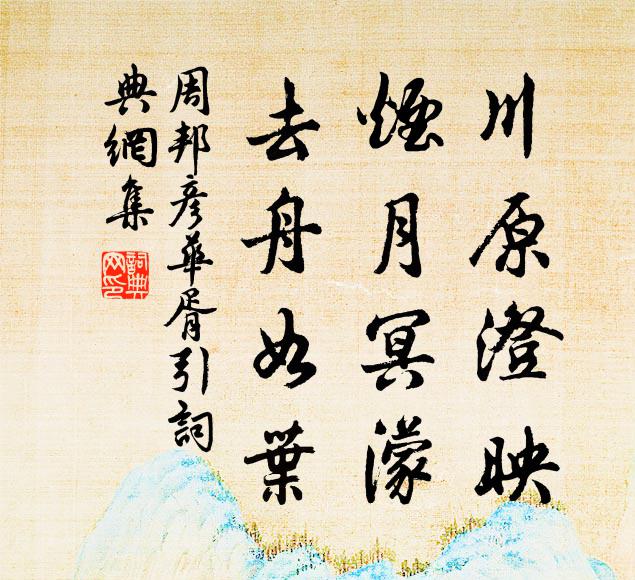 川原澄映
煙月冥濛
去舟如葉
周邦彥華胥引詞
典網集
詞典網印